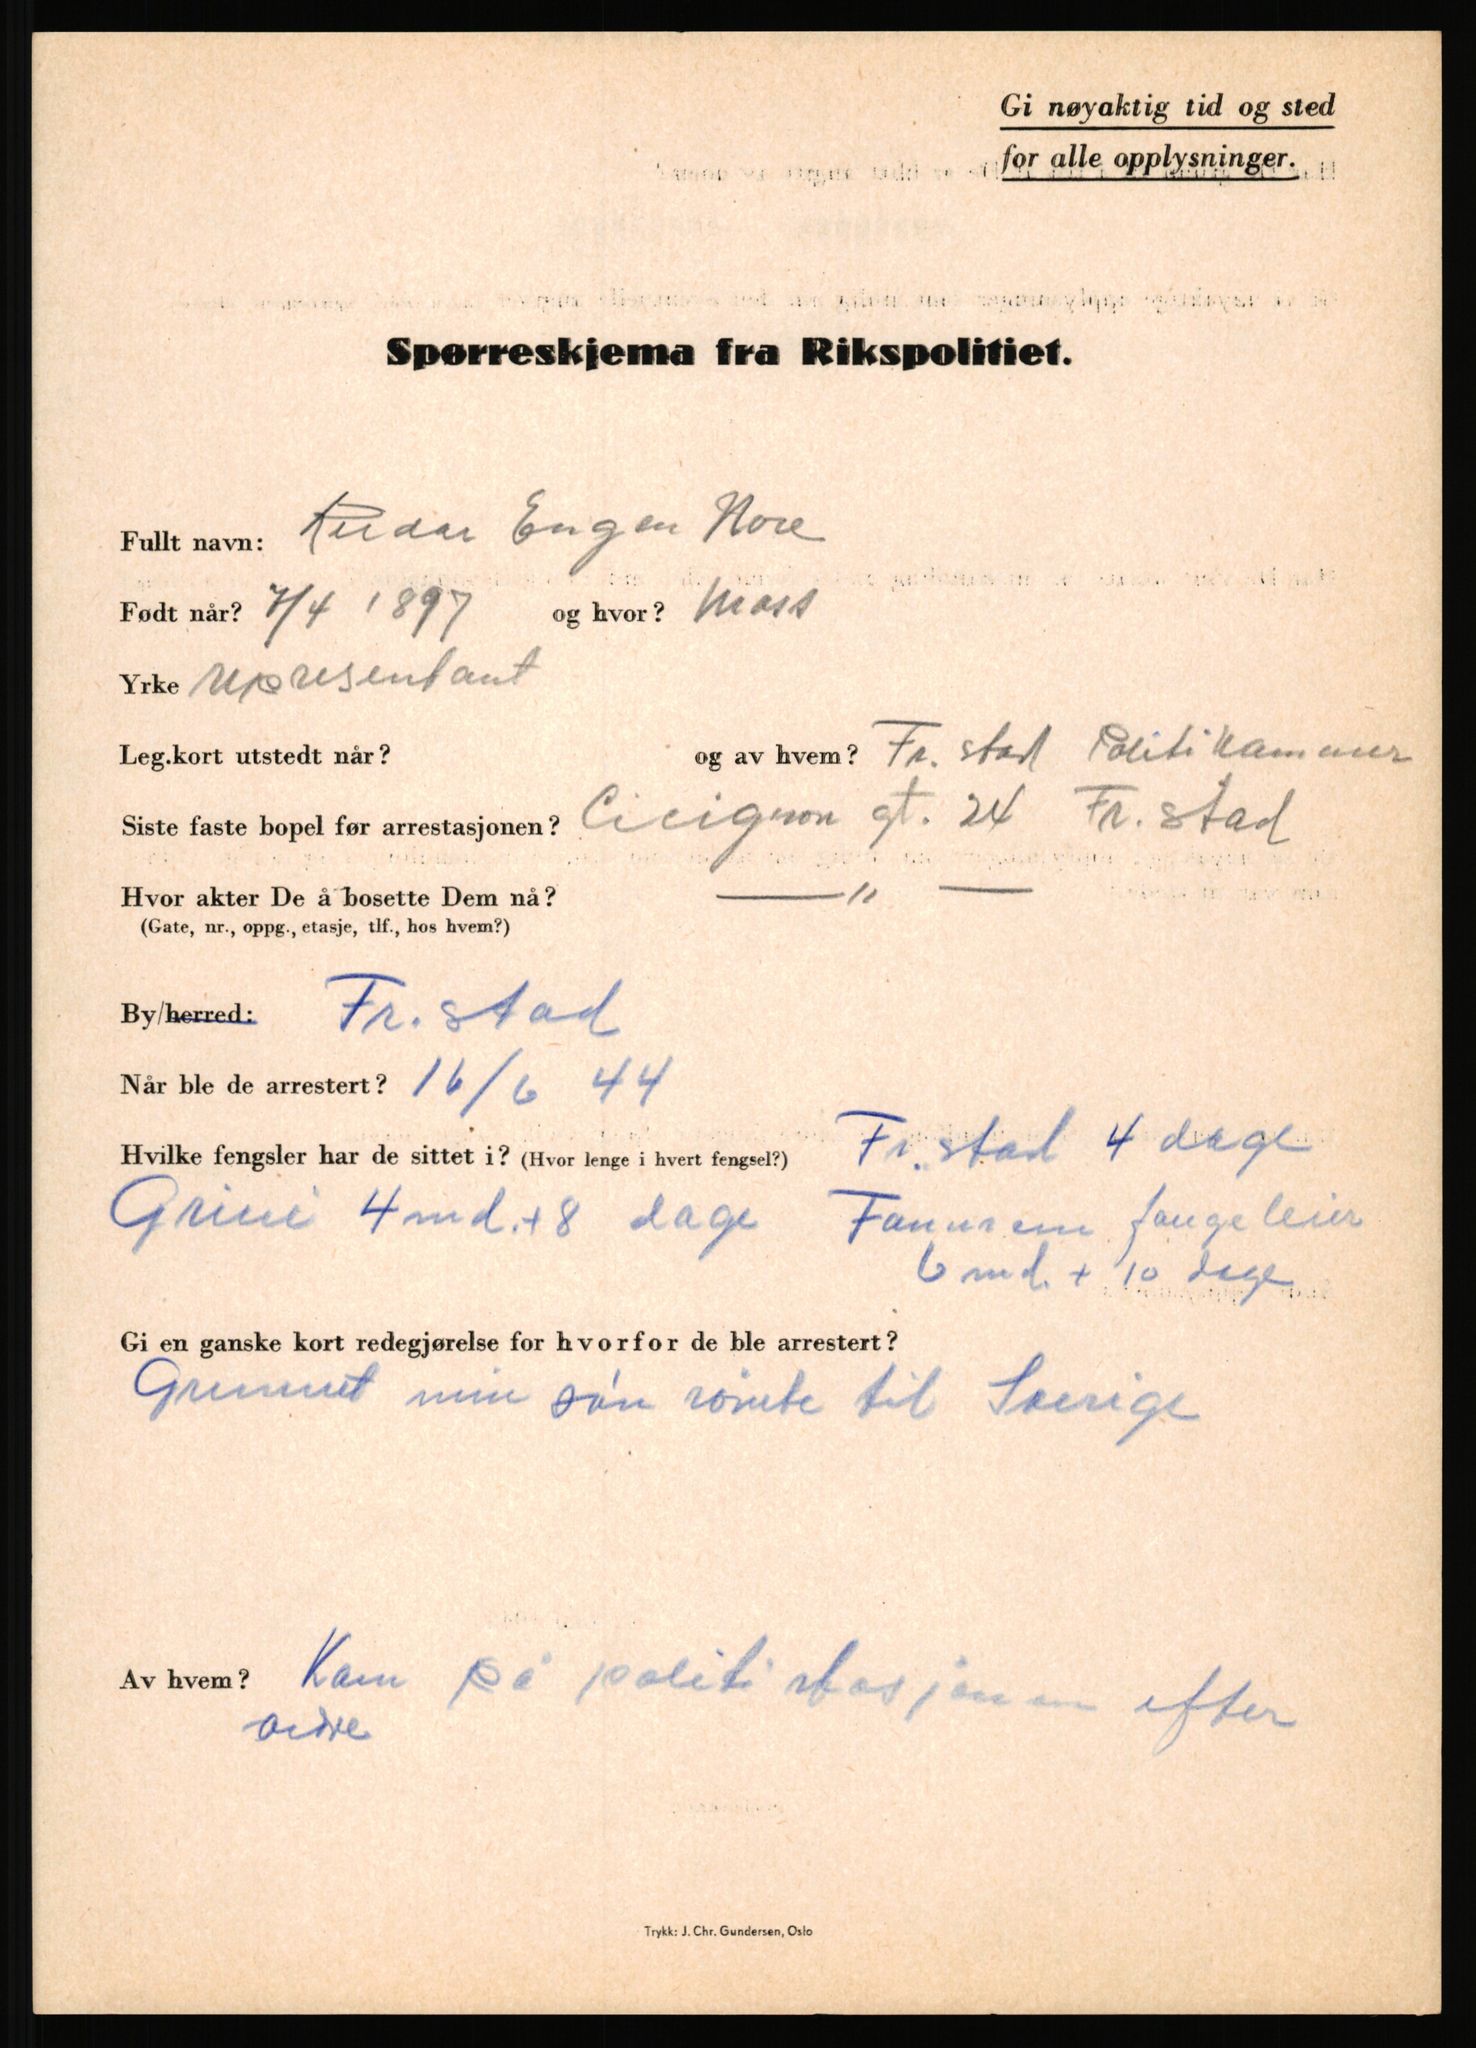 Gi nøyaktig tid og sted
for alle opplysninger.
Spørreskjema fra Rikspolitiet.
Fullt navn: Engen Hore
Født når? 7/4 1897 og hvor? Moss
Yrke representant
Leg.kort utstedt når? og av hvem? Fr. stad Politikammer
Siste faste bopel før arrestasjonen? Cicignon gt. 24 Fr. stad
Hvor akter De å bosette Dem nå? — " —
(Gate, nr., oppg., etasje, tlf., hos hvem?)
By/herred: Fr. stad
Når ble de arrestert? 16/6 44
Hvilke fengsler har de sittet i? (Hvor lenge i hvert fengsel?) Fr. stad 4 dage
Grini 4 md. + 8 dage Fannrem fangeleir
6 md. + 10 dage
Gi en ganske kort redegjørelse for hvorfor de ble arrestert?
Grunnet min søn rømte til Sverige
Av hvem? Kam på politistasjonen efter
ordre
Trykk: J. Chr. Gundersen, Oslo